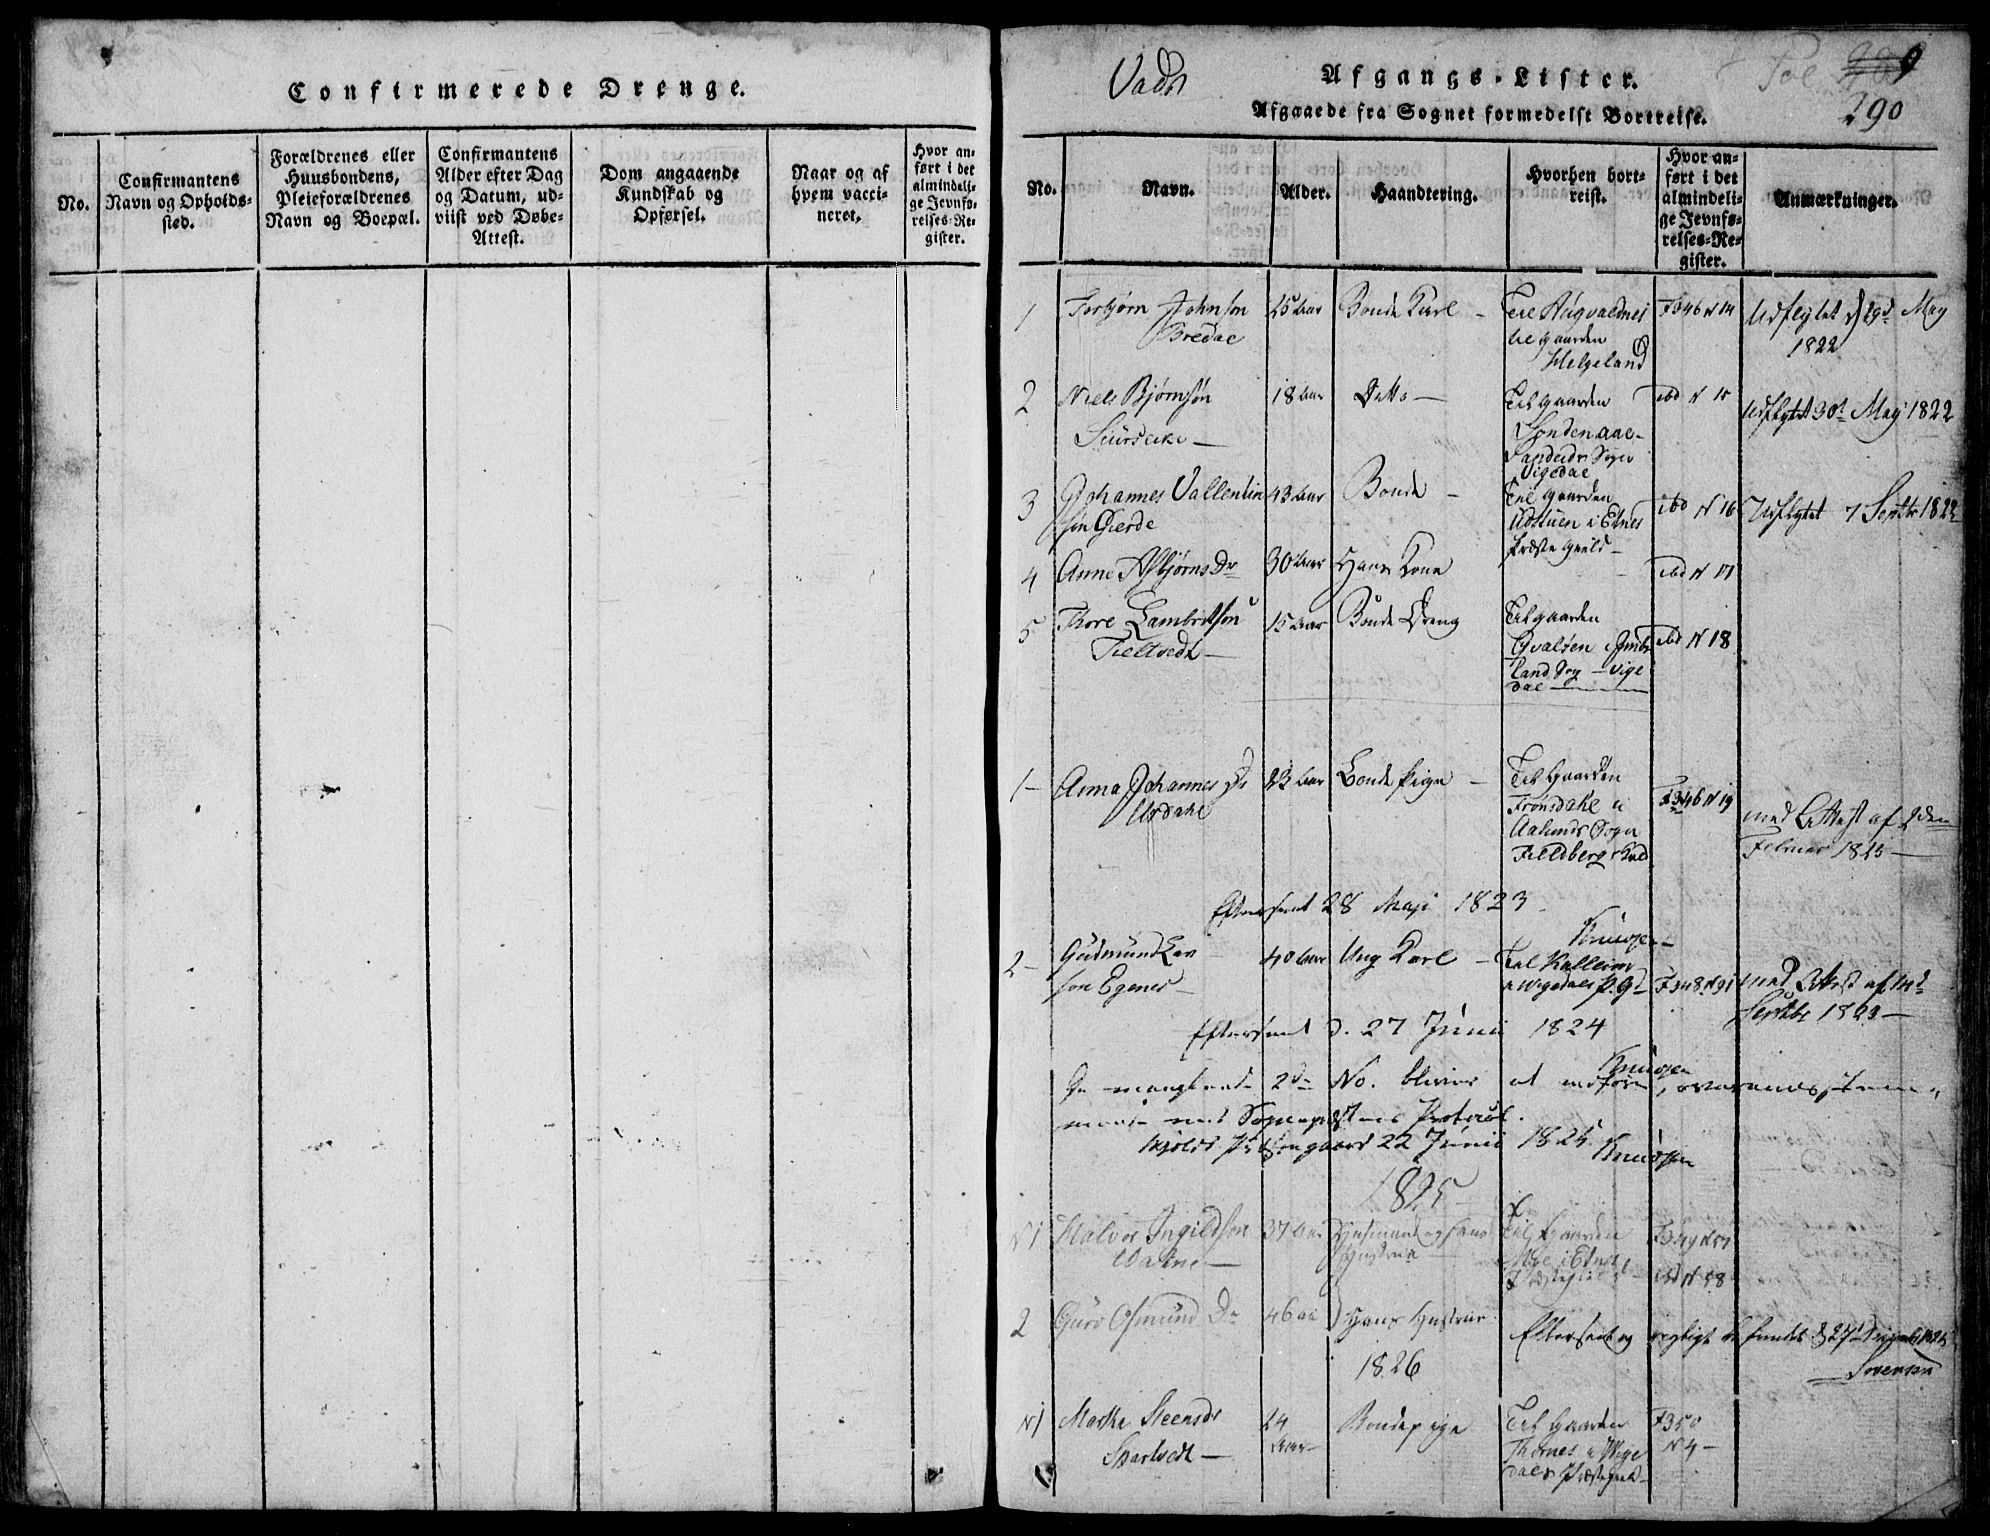 Confirmerede Drenge.
No.
Confirmantens
Navn og Opholds-
sted.
Forældrenes eller
Huusbondens,
Pleieforældrenes
Navn og Boepæl.
Confirmantens
Alder efter Dag
og Datum, ud-
viist ved Døbe-
Attest.
Dom angaaende
Kundskab og
Opførsel.
Naar og af
hvem vacci-
neret.
Hvor an-
ført i det
almindeli-
ge Jevnfø-
relses-Re-
gister.
Vads
Afgangs-Lister.
Fol
290
Afgaaede fra Sognet formedelst Bortreise.
No.
Navn.
Alder.
Haandtering.
Hvorhen bort-
reist.
Hvor an-
ført i det
almindeli-
ge Jevnfø-
relses-Re-
gister.
Anmærkninger.
1
Torbjørn Johnson
Bredal
25 Aar
Bonde Karl
Til Augvaldnes
til gaarden
Helgeland
F 346 N 14
Udflyttet d 29d May
1822
2
Niels Bjørnsøn
18 Aar
Ditto
Til gaarden
Søndenaae
Sandeids Sogn
Vigedal
ibd N 15
Udflyttet 30t May 1822
3
Johannes Vallentin
søn Gierde
43 Aar
Bonde
Til gaarden
Udstuen i Etnes
Præstegield
ibd N 16
Udflyttet 7 Septbr 1822
4
Anne Asbjørns Dr
30 Aar
Hans Kone
ibd N 17
5
Thore Lambertson
Tieltvedt
15 Aar
Bonde Dreng
Til gaarden
i Imbs
land Sog Vige
dal
ibd N 18
1
Anna Johannes Dr
Urdahl
23 Aar
Bonde Pige
Til Gaarden
Frønsdahl i
Aalunds Sogn
Fieldberg
F 346 N 19
med Attest af
Februar 1823
Efterseet 28 Maji 1823
Knudsen
2
Gudmund
søn Egenes
40 Aar
Ung Karl
Til Kalleim
i Wigedals P.G.
F 348 N 91
med Attest af
Septbr 1823
Efterseet d. 27 Junii 1824
Knudsen
De manglende 2de No. bliver at indføre,
med Sognepræstens Protocol.
Skjolds Præstegaard 22 Junii 1825
Knudsen
1825
N 1
Halvor Ingildson
37 Aar
Husmand og hans
Hustrue
Til Gaarden
i Etnes
Præstegield
F 349 N 57
ibd N 58
2
Guro Osmund Dr
46 aa
Hans Hustrue
Efterseet og rigtigt befundet d 27
Sørensen
1826
N 1
Marthe Steensdr
Skartvedt
24
Aar
Bondepige
Til Gaarden
Thornes i Wige
dals Præstegield
F 350
N 4